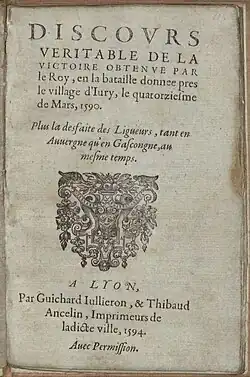 DISCOVRS
VERITABLE DE LA
VICTOIRE OBTENVE PAR
le Roy, en la bataille donnee pres
le village d'Iury, le quatorziesme
de Mars, 1590.
Plus la desfaite des Ligueurs, tant en
Auuergne qu'en Gascongne, au
mesme temps.
A LYON,
Par Guichard Iullieron, & Thibaud
Ancelin, Imprimeurs de
ladicte ville, 1594.
Auec Permission.